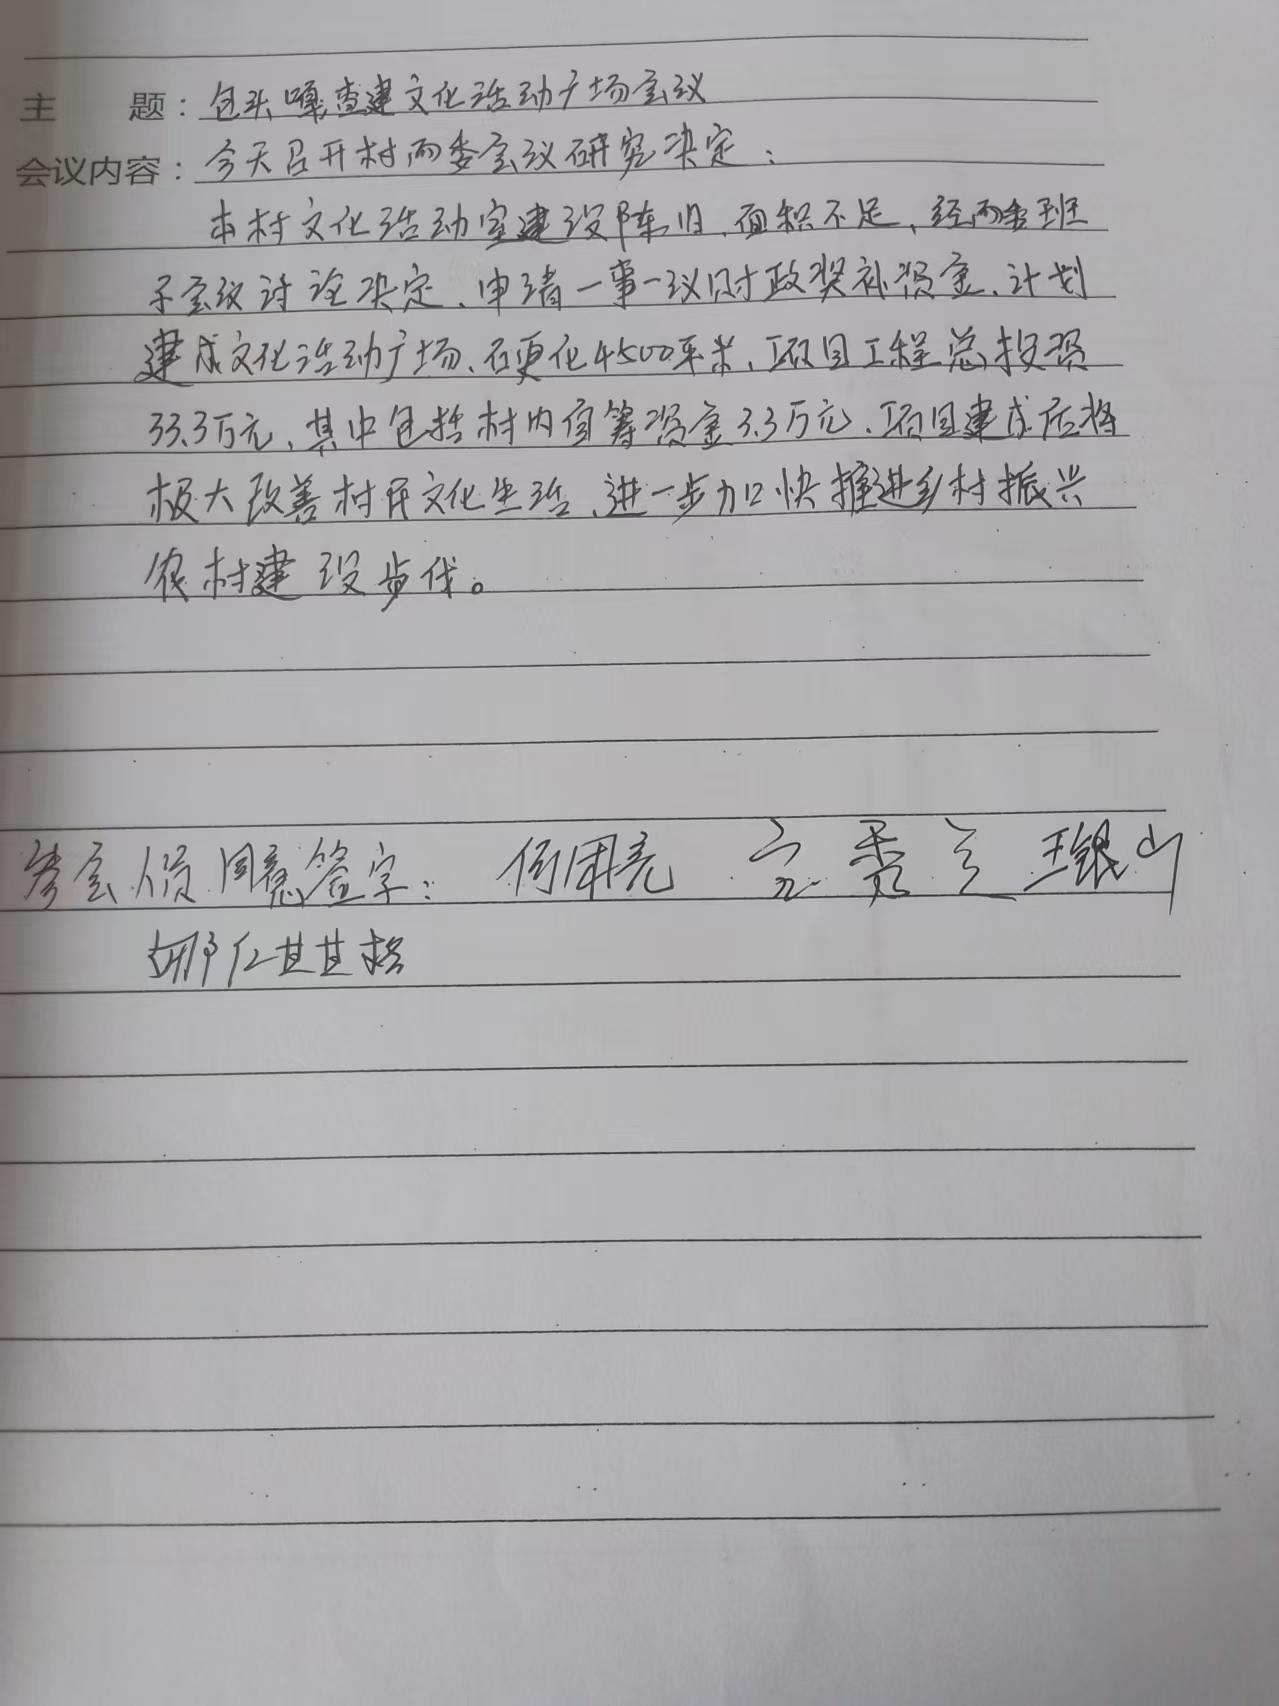 主 题：包头嘎查建文化活动广场会议
会议内容：今天召开村两委会议研究决定：
本村文化活动室建设陈旧、面积不足、经两委班
子会议讨论决定、申请一事一议财政奖补资金、计划
建成文化活动广场、石更化4500平米、项目工程总投资
33.3万元、其中包括村内自筹资金3.3万元、项目建成后将
极大改善村民文化生活、进一步加快推进乡村振兴
农村建设步伐。
参会人员同意签字： 何国亮 王银山
娜仁其其格